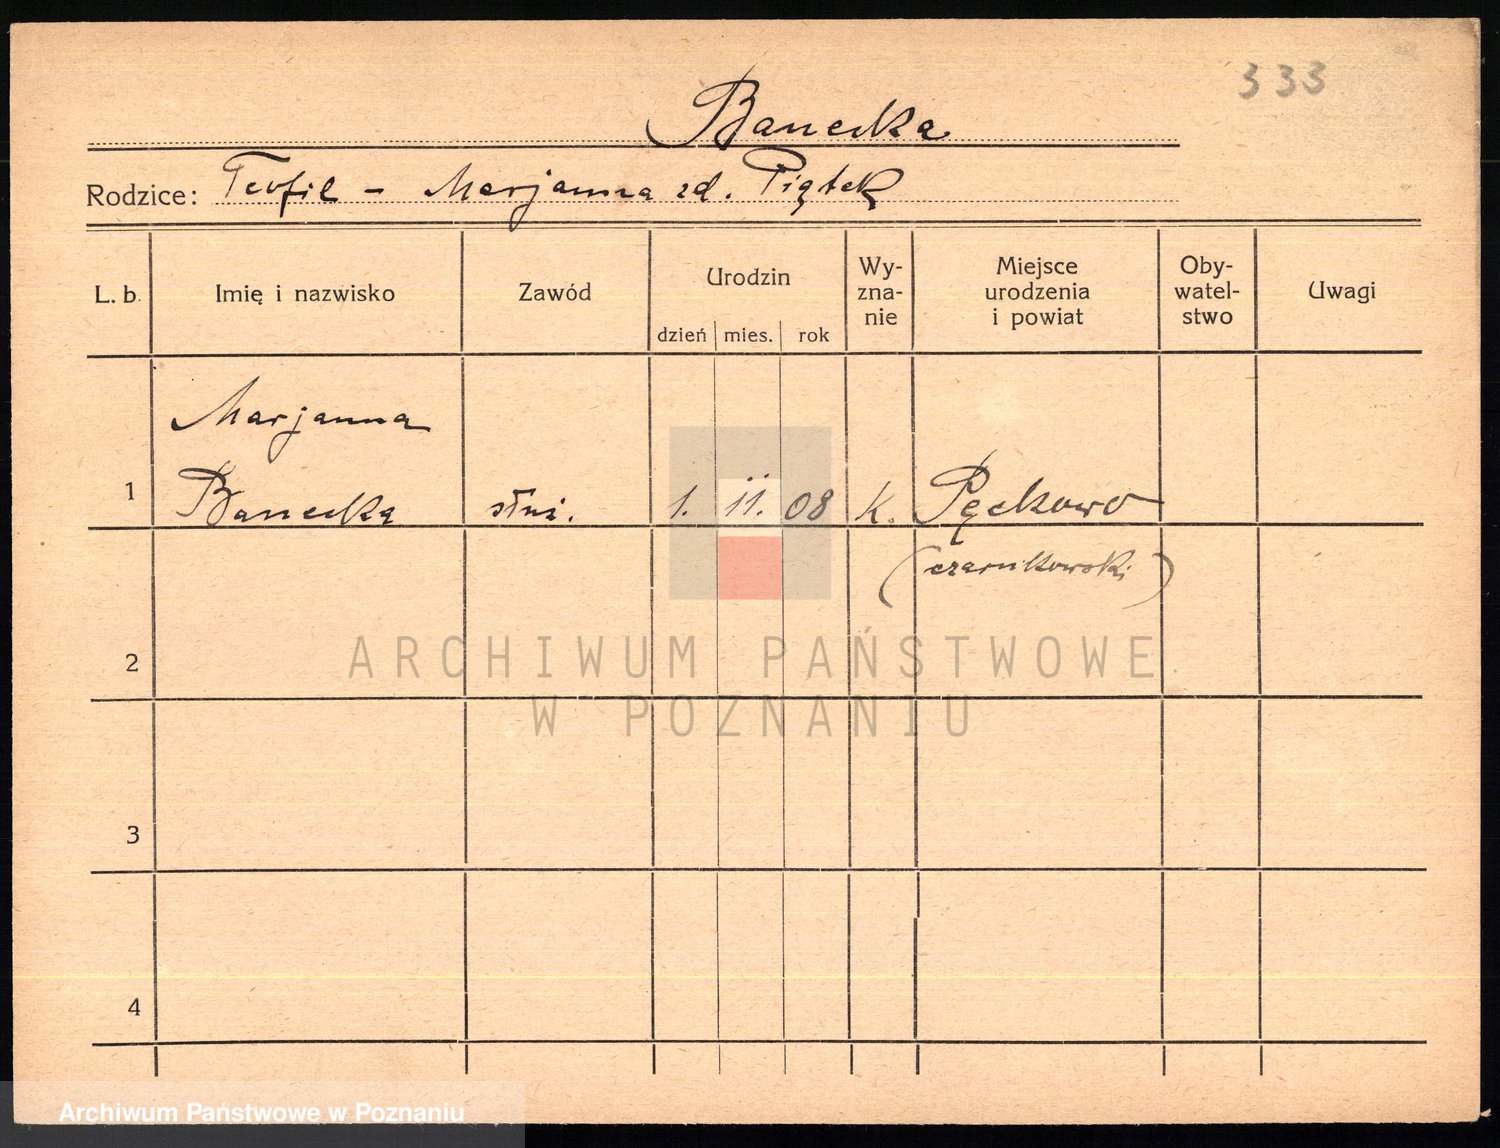 333
Banecka
Rodzice: Teofil - Marjanna zd. Piątek
L. b. Imię i nazwisko Zawód Urodzin Wy-zna-nie Miejsce urodzenia i powiat Oby-watel-stwo Uwagi
dzień mies. rok
Marjanna
1 Banecka służ. 1. 11. 08 k. Pęckowo
(czarnikowski)
2
3
4
ARCHIWUM PAŃSTWOWE
W POZNANIU
Archiwum Państwowe w Poznaniu